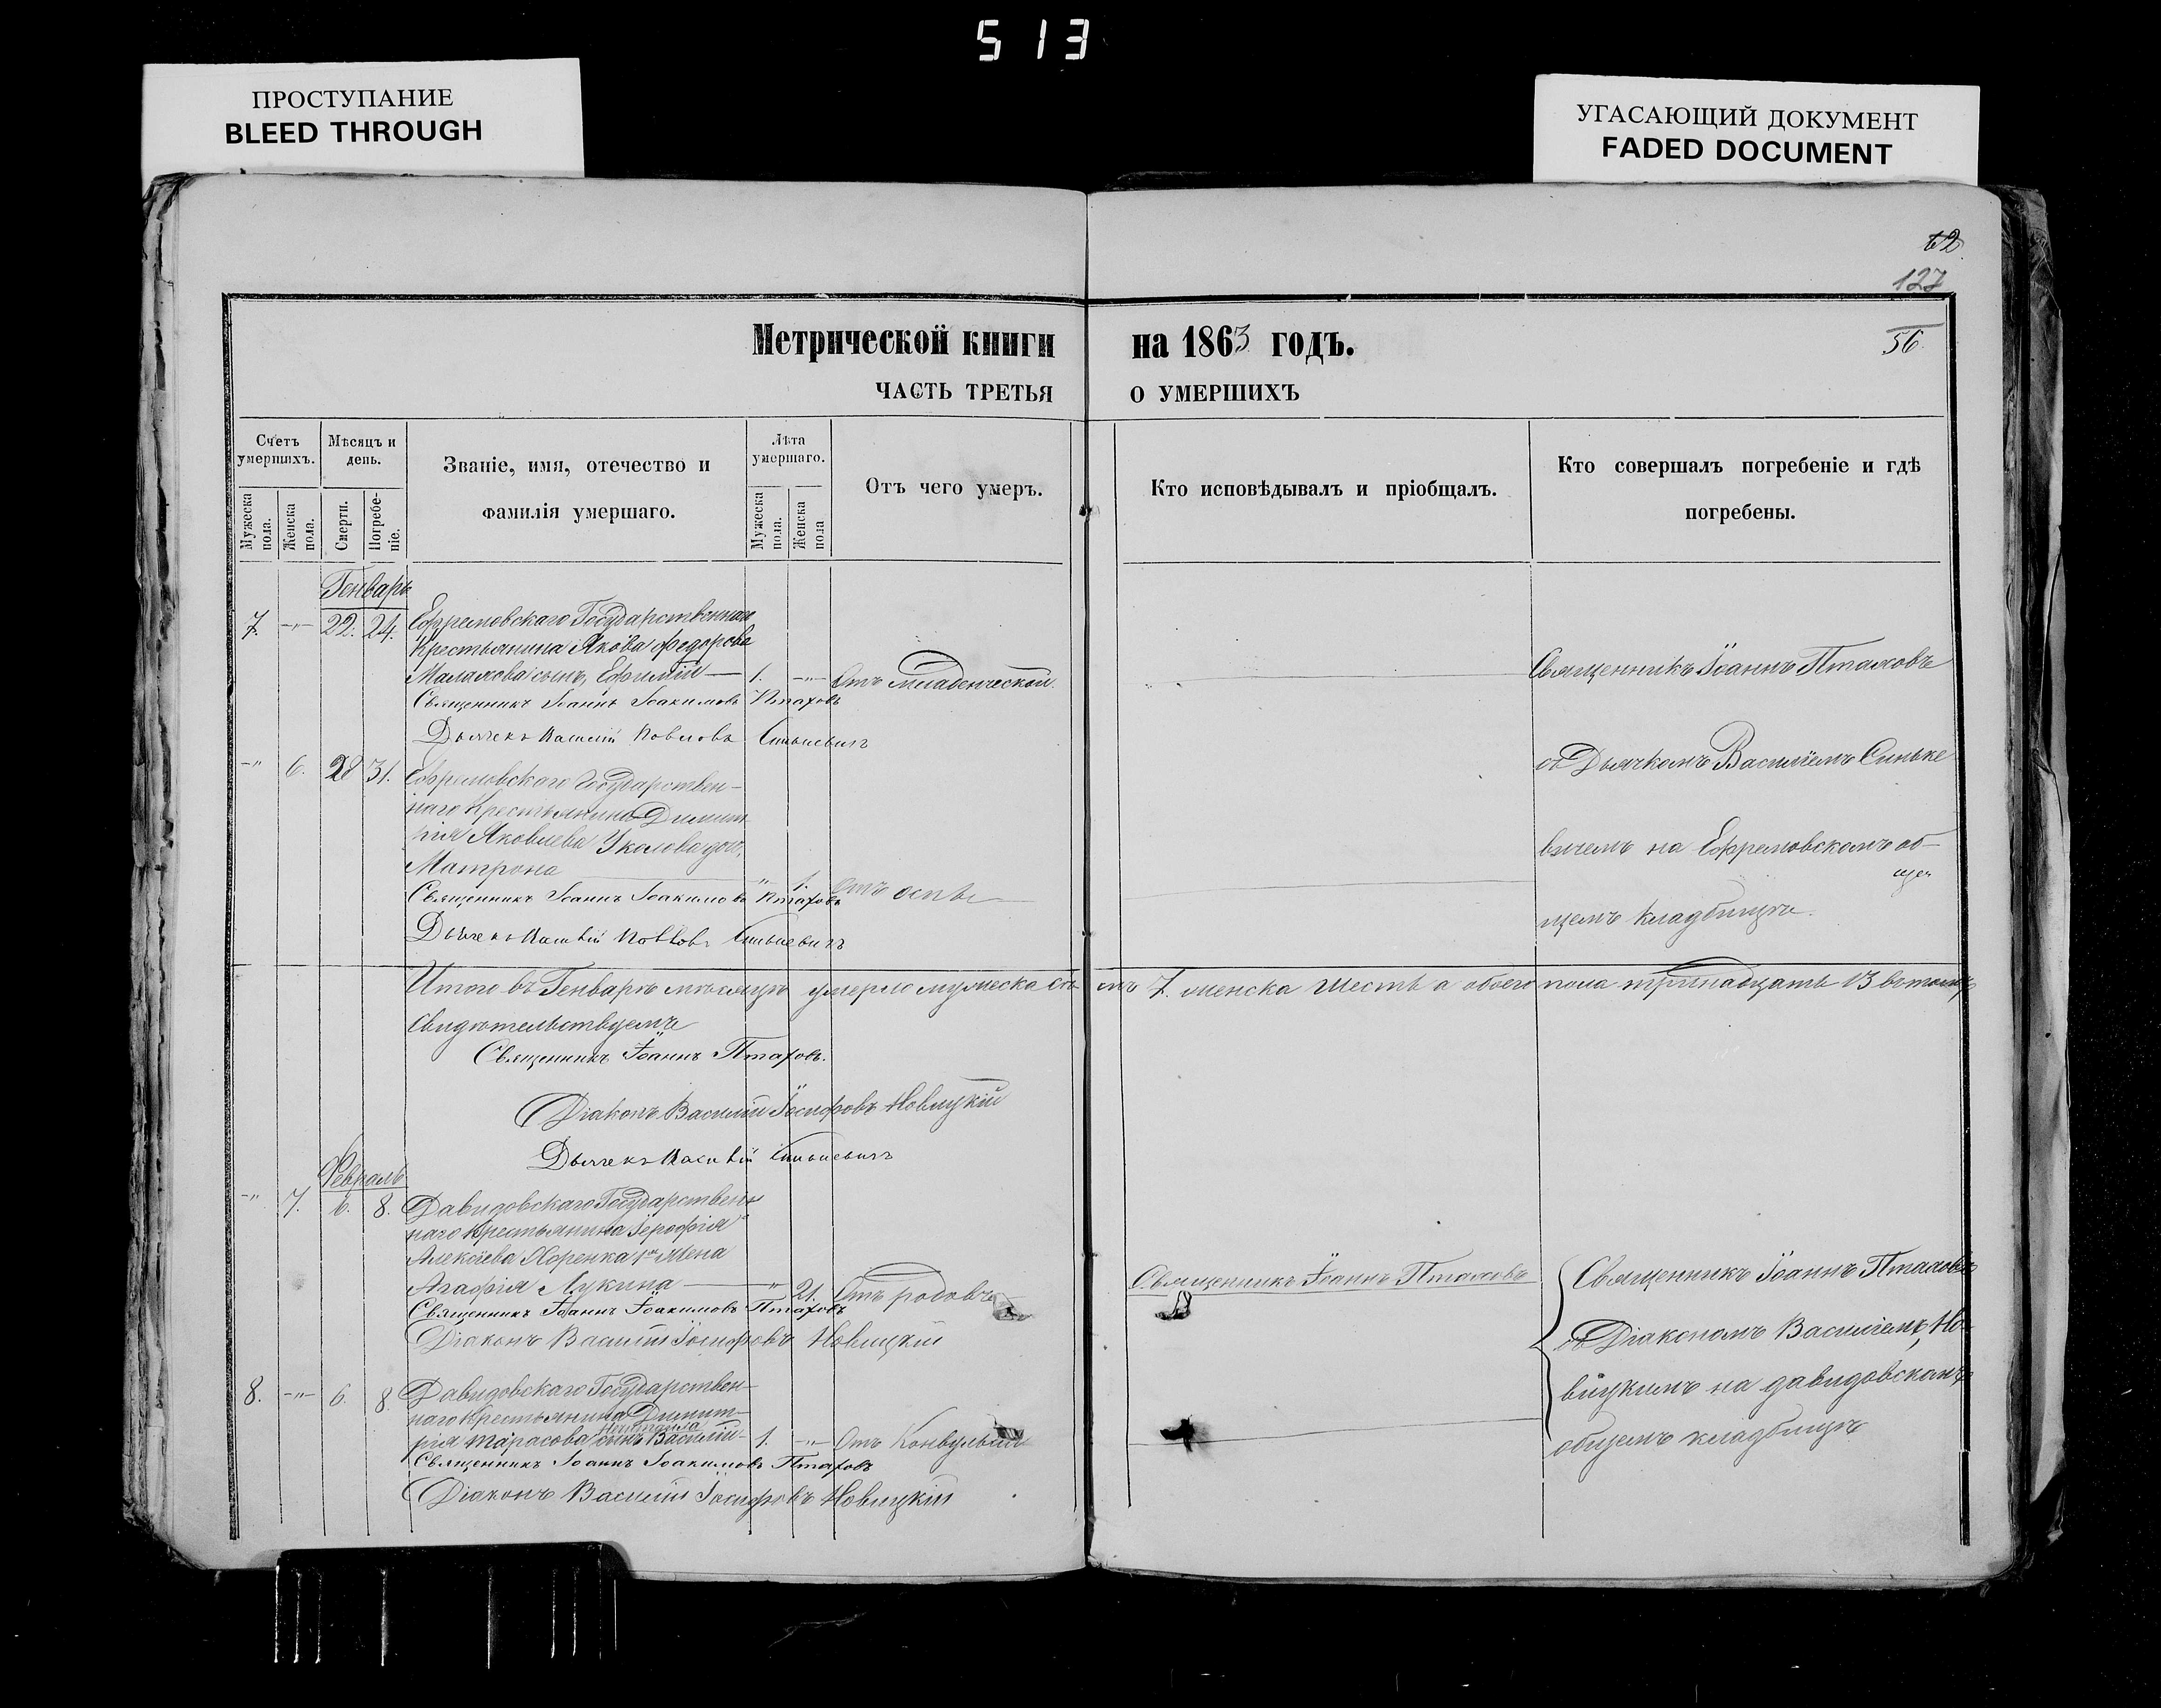 513
ПРОСТУПАНИЕ
BLEED THROUGH
УГАСАЮЩИЙ ДОКУМЕНТ
FADED DOCUMENT
62.
127
56.
Метрической книги на 1863 годъ.
ЧАСТЬ ТРЕТЬЯ О УМЕРШИХЪ
Счетъ умершихъ.
Мужеска пола.
Женска пола.
Мѣсяцъ и день.
Смерти.
Погребе-ніе.
Званіе, имя, отечество и
фамилія умершаго.
Лѣта умершаго.
Мужеска пола.
Женска пола
Отъ чего умеръ.
Кто исповѣдывалъ и пріобщалъ.
Кто совершалъ погребеніе и гдѣ
погребены.
Генварь
7. -"- 22. 24. Ефремовскаго Государственнаго
Крестьянина Якова Федорова
Малахова сынъ, Ефимій — 1. -"- Отъ младенческой.
Священникъ Іоаннъ Іоакимовъ Птаховъ
Дьячекъ Василій Павловъ Синькевичъ
Священникъ Іоаннъ Птаховъ
съ Дьячкомъ Василіемъ Синьке
вичемъ на Ефремовскомъ об-
щемъ кладбищѣ.
-" 6. 28 31. Ефремовскаго Государствен-
наго Крестьянина Димит
рія Яковлева Укалова доч.
Матрона — " 1. Отъ оспы
Священникъ Іоаннъ Іоакимовъ Птаховъ
Дьячекъ Василій Павловъ Синькевичъ
Итого въ Генварѣ мѣсяцѣ умерло мужеска семь 7. женска шесть а обоего пола тринадцать 13 въ томъ
Свидѣтельствуемъ
Священникъ Іоаннъ Птаховъ.
Діаконъ Василій Іосифовъ Новицкій
Дьячекъ Василій Синькевичъ
Февраль
-" 7. 6. 8. Давидовскаго Государствен
наго Крестьянина Іерофія
Алексѣева 1я жена
Агафія Лукина — " 21. Отъ родовъ
Священникъ Іоаннъ Іоакимовъ Птаховъ
Діаконъ Василій Іосифовъ Новицкій
Священникъ Іоаннъ Птаховъ
Священникъ Іоаннъ Птаховъ
съ Діакономъ Василіемъ Но-
вицкимъ на давидовскомъ
общемъ кладбищѣ
8. -"- 6. 8. Давидовскаго Государствен-
наго Крестьянина Димит-
рія Тарасова сынъ Василій - 1. -"- Отъ Конвульсіи
Священникъ Іоаннъ Іоакимовъ Птаховъ
Діаконъ Василій Іосифовъ Новицкій